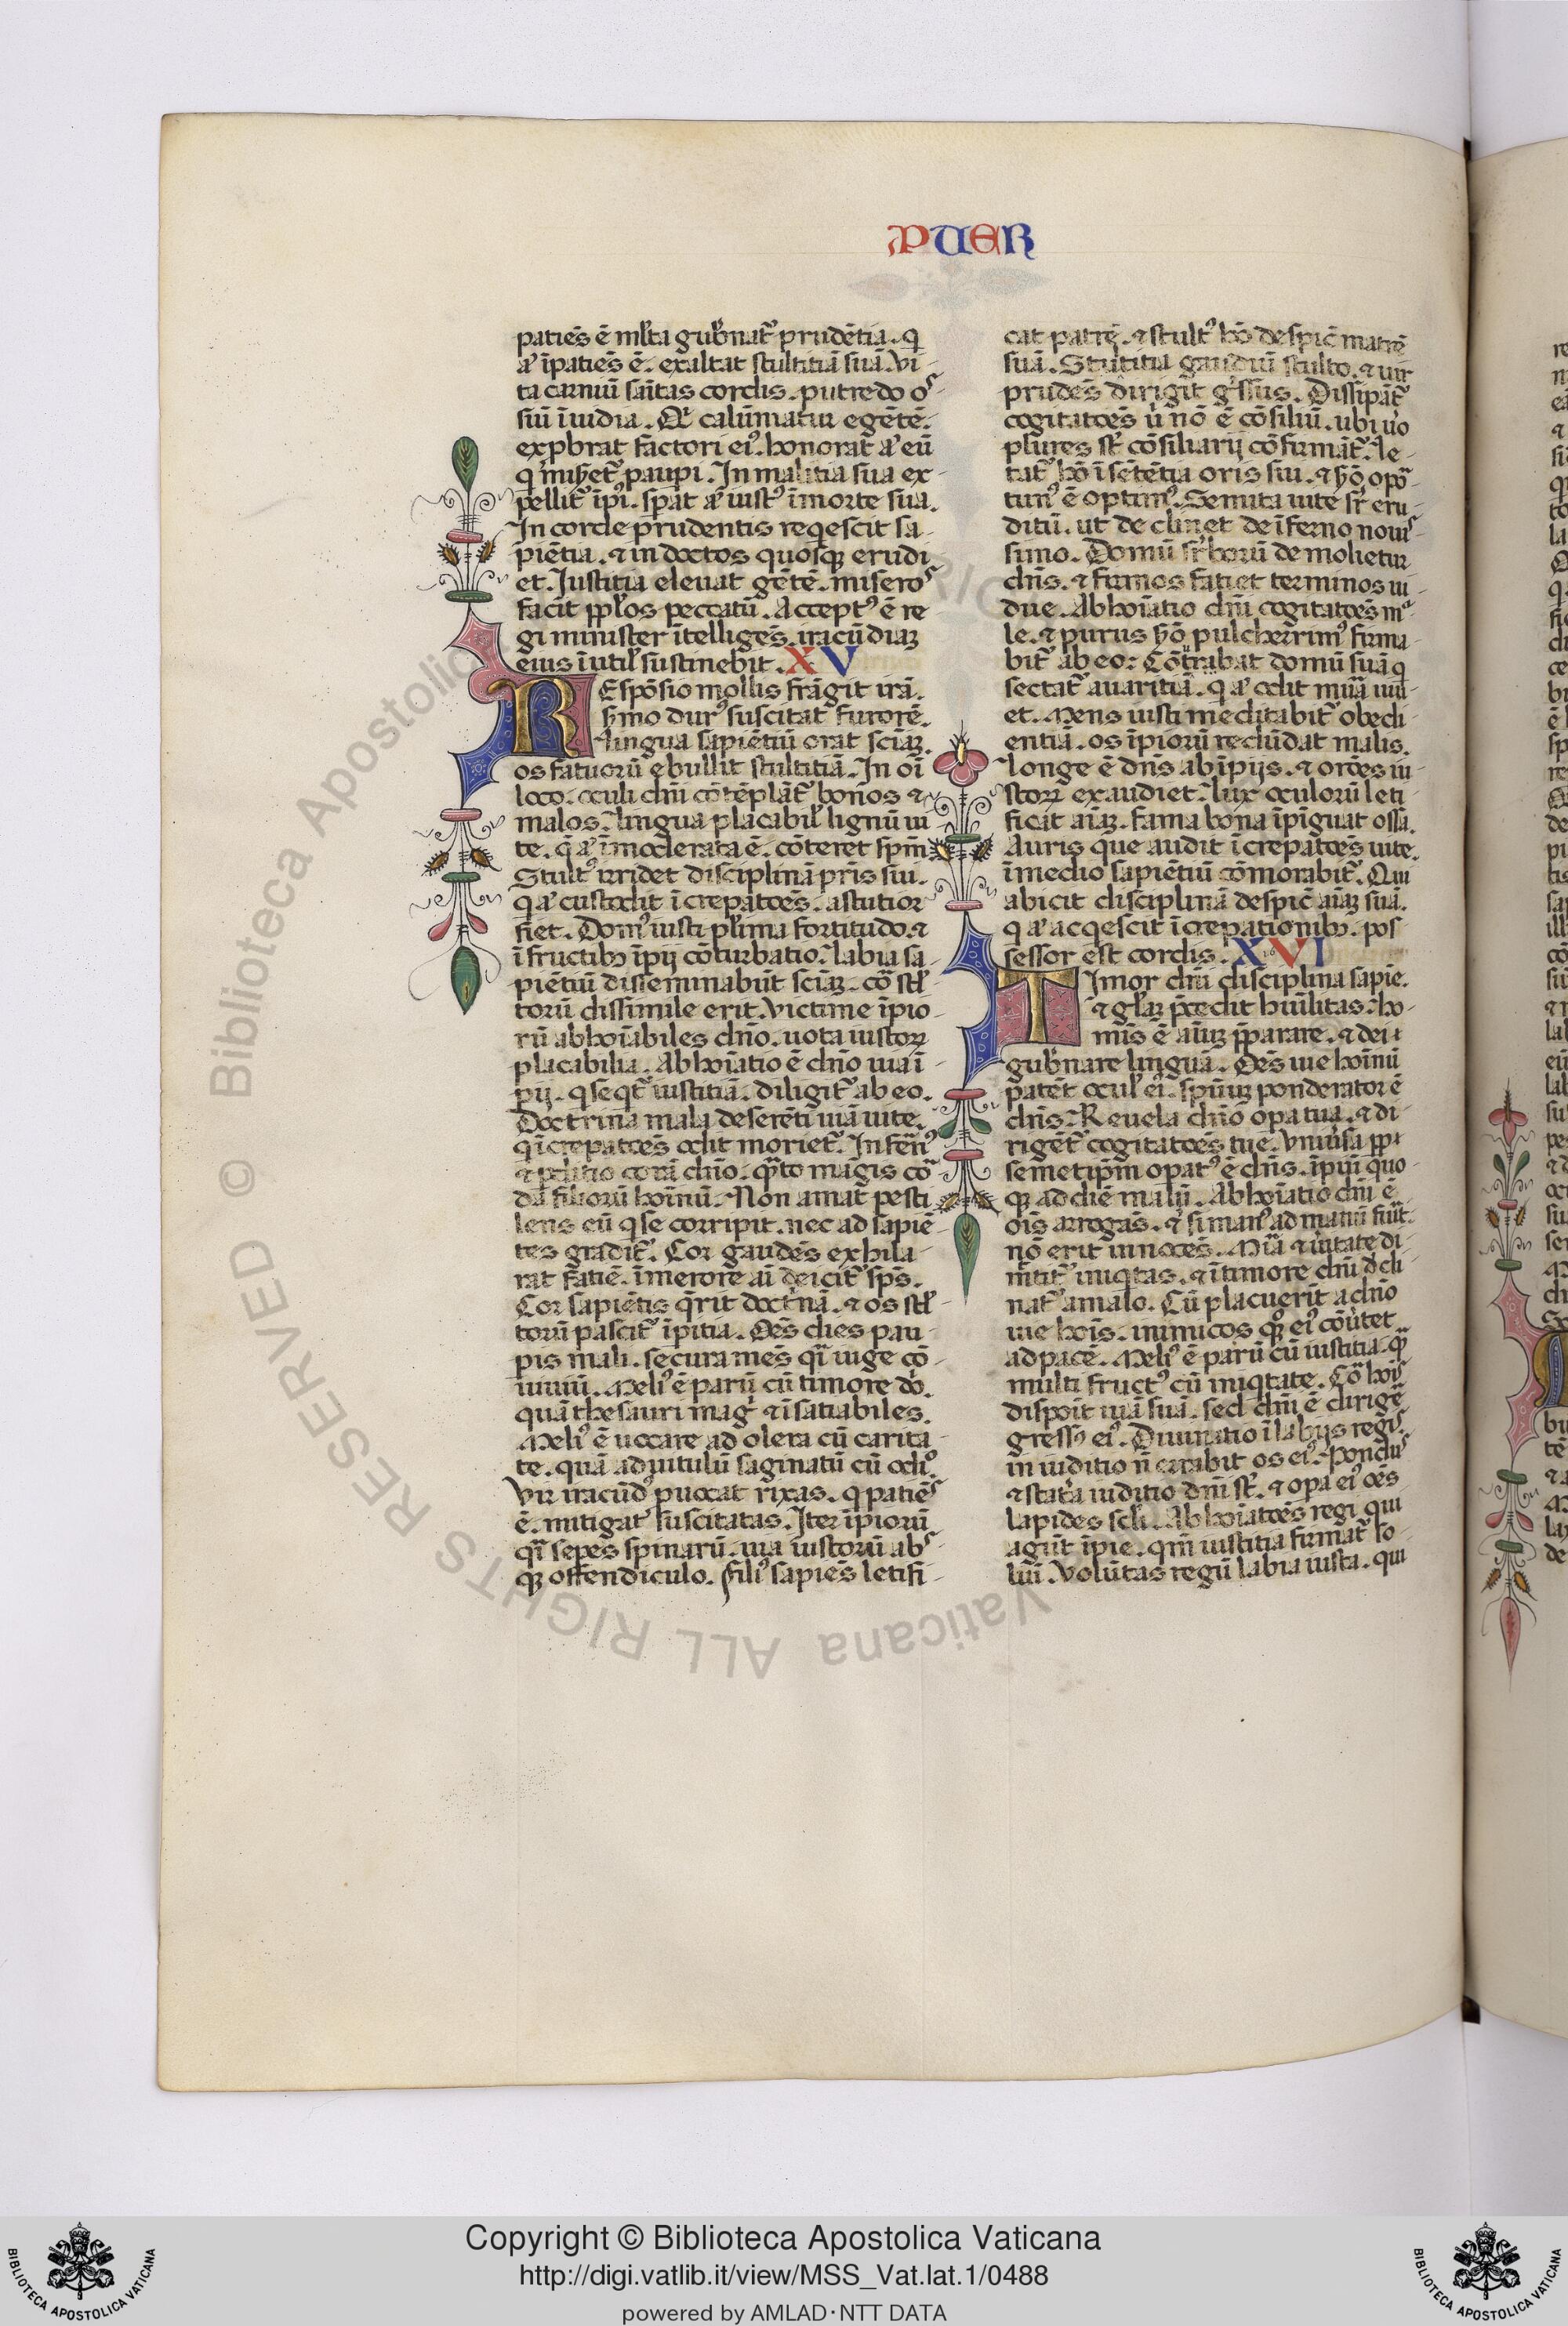 PUER
patiēs ē ml̄ta gub̄nat᷑ prudētia. q
aͣ īpatiēs ē. exaltat stultitiā suā. Vi-
ta carniū sāītas cordis. putredo o-
siū īuidia. Qi calūmiatur egētē.
expbrat factori eiꝰ. honorat aͣ eū
q miẜet᷑ paupi. In malitia sua ex-
pellit᷑ īpi. spat aͣ iustꝰ ī morte sua.
In corde prudentis reqescit sa-
piētia. ⁊ in doctos quosqꝫ erudi-
et. Iustitia eleuat gētē. misero
facit pp̄los peccatū. Acceptꝰ ē re
gi minister ītelligēs. iracūdiaꝫ
eius īutil̄ sustinebit. XV
REspōsio mollis frāgit irā.
ẜmo durꝰ suscitat furorē.
lingua sapiētiū ornat sciāꝫ.
os fatuorū ebullit stultitiā. In oī
loco. oculi dn̄i cōtēplāt᷑ bonos ⁊
malos. lingua placabil̄ lignū ui-
te. q̄ aͣ īmoderata ē. cōteret sp̄m
Stultꝰ irridet disciplinā pr̄is sui.
q aͣ custodit īcrepatōes. astutior
fiet. Domꝰ iusti pl̄ima fortitudo. ⁊
ī fructibꝫ īpij cōturbatio. labia sa-
piētiū disseminabūt sciāꝫ. cō stl̄-
torū dissimile erit. Victime īpio-
rū abhoīabiles dn̄o. uota iustoꝝ
placabilia. Abhoīatio ē dn̄o uia ī
pij. q seqt᷑ iustitiā. diligit᷑ ab eo.
Doctrina mala deserēti uiā uite.
q īcrepatōes odit moriet᷑. Infernꝰ
⁊ pditio corā dn̄o. qͣto magis cō
da filiorū hoīnū. Non amat pesti
lens eū q se corripit. nec ad sapiē-
tes gradit᷑. Cor gaudēs exhila-
rat fatiē. ī merore aī deicit᷑ sp̄s.
Cor sapiētis q̄rit doctͥnā. ⁊ os stl̄-
torū pascit᷑ īpitia. Oēs dies pau-
pis mali. secura mēs qͣi iuge cō-
uiuiū. Meliꝰ ē parū cū timore dn̄i.
quā thesauri magͥ ⁊ īsatiabiles.
Meliꝰ ē uocare ad olera cū carita-
te. quā ad uitulū saginatū cū odiꝰ.
Vir iracūdꝰ puocat rixas. q patiēs
ē. mitigat suscitatas. Iter īpiorū
qͣi sepes spinarū. uia iustorū abs-
qꝫ offendiculo. Filiꝰ sapiēs letifi-
cat patrē. ⁊ stultꝰ hō despic̄ matrē
suā. Stutitia gaudiū stulto. ⁊ uir
prudēs dirigit gͤssus. Dissipāt᷑
cogitatōes ủ nō ē cōsiliū. ubi uͦo
plures st̄ cōsiliarij cōfirmāt᷑. le-
tat᷑ hō ī sētētia oris sui. ⁊ ẜō opo-
tunꝰ ē optimꝰ. Semita uite sr̄ eru-
ditū. ut declinet de īferno nouis
simo. Domū sr̄borū demolietur
dn̄s. ⁊ firmos fatiet terminos ui-
due. Abhoīatio dn̄i cogitatōes mͣ-
le. ⁊ purus ẜō pulcherrimꝰ firma-
bit᷑ ab eo. Cōtͧrbat domū suā q
sectat᷑ auaritiā. q aͣ odit mūa uiu-
et. Mens iusti meditabit᷑ obedi-
entiā. os īpiorū redūdat malis.
longe ē dn̄s ab īpijs. ⁊ orōes iu-
stoꝝ exaudiet. lux oculorū leti
ficat aīaꝫ. fama bona īpīguat ossa.
Auris que audit īcrepatōes uite.
ī medio sapiētiū cōmorabit᷑. Qui
abicit disciplinā despic̄ aīaꝫ suā.
q aͣ acqescit īcrepationibꝫ. pos
sessor est cordis. XVI
TImor dn̄i disciplina sapie.
⁊ gl̄aꝫ p̄cedit huīlitas. ho-
mīs ē aīaꝫ p̄parare. ⁊ dei
gub̄nare linguā. Oēs uie hoīnū
patēt ocul̄ eiꝰ. spūuꝫ ponderator ē
dn̄s. Reuela dn̄o opa tua. ⁊ di-
rigēt᷑ cogitatōes tue. Vniủsa pp̄t
semetip̄m opatꝰ ē dn̄s. īpiū quo-
qꝫ ad diē malū. Abhoīatio dn̄i ē
ois arrogās. ⁊ si manꝰ ad manū fuīt.
nō erit innocēs. Mīa ⁊ ủitate di-
mitit᷑ iniqtas. ⁊ ī timore dn̄i decli
nat᷑ a malo. Cū placuerit a dn̄o
uie hoīs. inimicos qͦqꝫ eiꝰ cōủtet
ad pacē. Meliꝰ ē parū cū iustitia. qͣꝫ
multi fructꝰ cū iniqtate. Cō hoīs
dispoit uiā suā. sed dn̄i ē dirigē
gressꝰ eiꝰ. Diuinatio ī labijs regis.
in iuditio n̄ errabit os eiꝰ. Pondus
⁊ statͣa iuditio dn̄i st̄. ⁊ opa eiꝰ oēs
lapides scl̄i. Abhoīatōes regi qui
agūt īpie. qm̄ iustitia firmat᷑ so-
liū. Volūtas regū labia iusta. qui
© Biblioteca Apostolica Vaticana ALL RIGHTS RESERVED
Copyright © Biblioteca Apostolica Vaticana
http://digi.vatlib.it/view/MSS_Vat.lat.1/0488
powered by AMLAD·NTT DATA
BIBLIOTECA APOSTOLICA VATICANA
BIBLIOTECA APOSTOLICA VATICANA